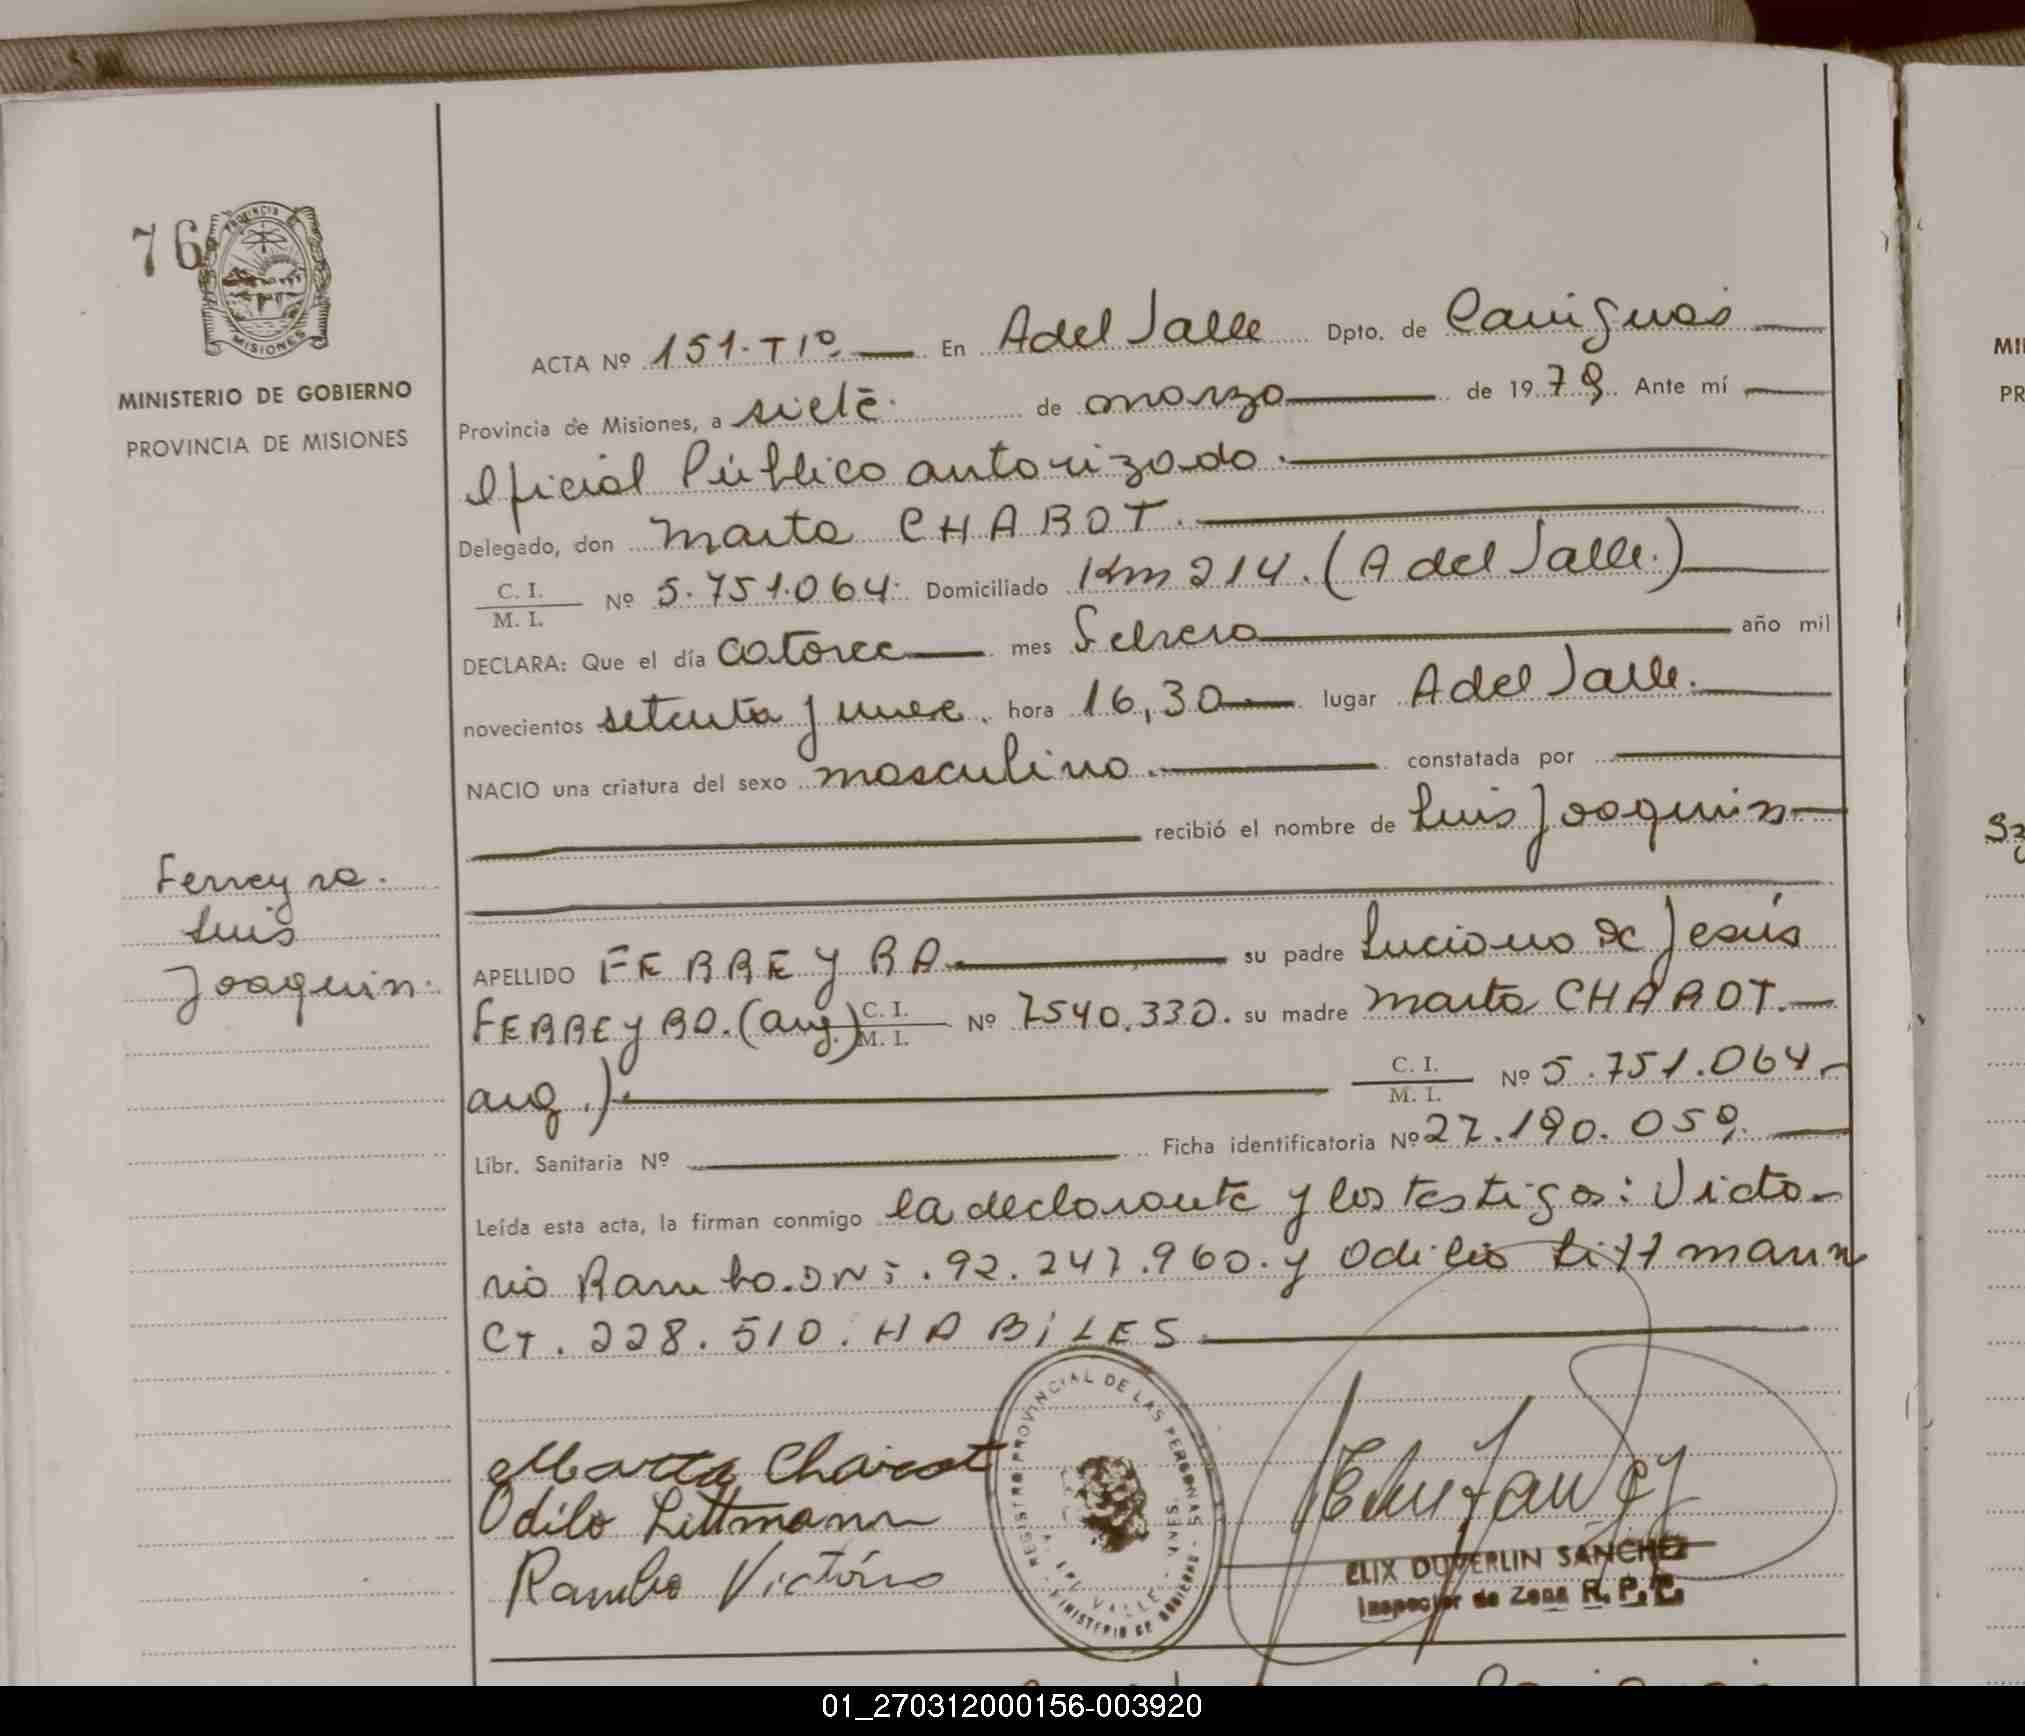 76
PROVINCIA DE
MISIONES
MINISTERIO DE GOBIERNO
PROVINCIA DE MISIONES
ACTA Nº 151-Tº1º. En A del Valle Dpto. de Cainguas
Provincia de Misiones, a siete de marzo de 1979. Ante mí
Oficial Público autorizado.
Delegado, don Marta CHABOT.
C. I.
M. I.
Nº 5.751.064. Domiciliado Km 214. (A del Valle.)
DECLARA: Que el día catorce mes Febrero año mil
novecientos setenta y nueve. hora 16,30 lugar A del Valle.
NACIO una criatura del sexo masculino. constatada por
recibió el nombre de Luis Joaquin
Ferreyra.
Luis
Joaquin.
APELLIDO FERREYRA su padre Luciano de Jesús
FERREYRA. (arg.) C. I. M. I. Nº 7540.330. su madre Marta CHABOT.
arg.) C. I. M. I. Nº 5.751.064.
Libr. Sanitaria Nº Ficha identificatoria Nº 27.190.059.
Leída esta acta, la firman conmigo la declarante y los testigos: Victo-
rio Rambo. DNi. 92.247.960. y Odilio Littmann
CI. 228.510. HABILES
Marta Chabot
Odilo Littmann
Rambo Victório
REGISTRO PROVINCIAL DE LAS PERSONAS
MINISTERIO DE GOBIERNO
DEL VALLE
ELIX DUVERLIN SANCHEZ
Inspector de Zona R. P. P.
MI
PR
01_270312000156-003920